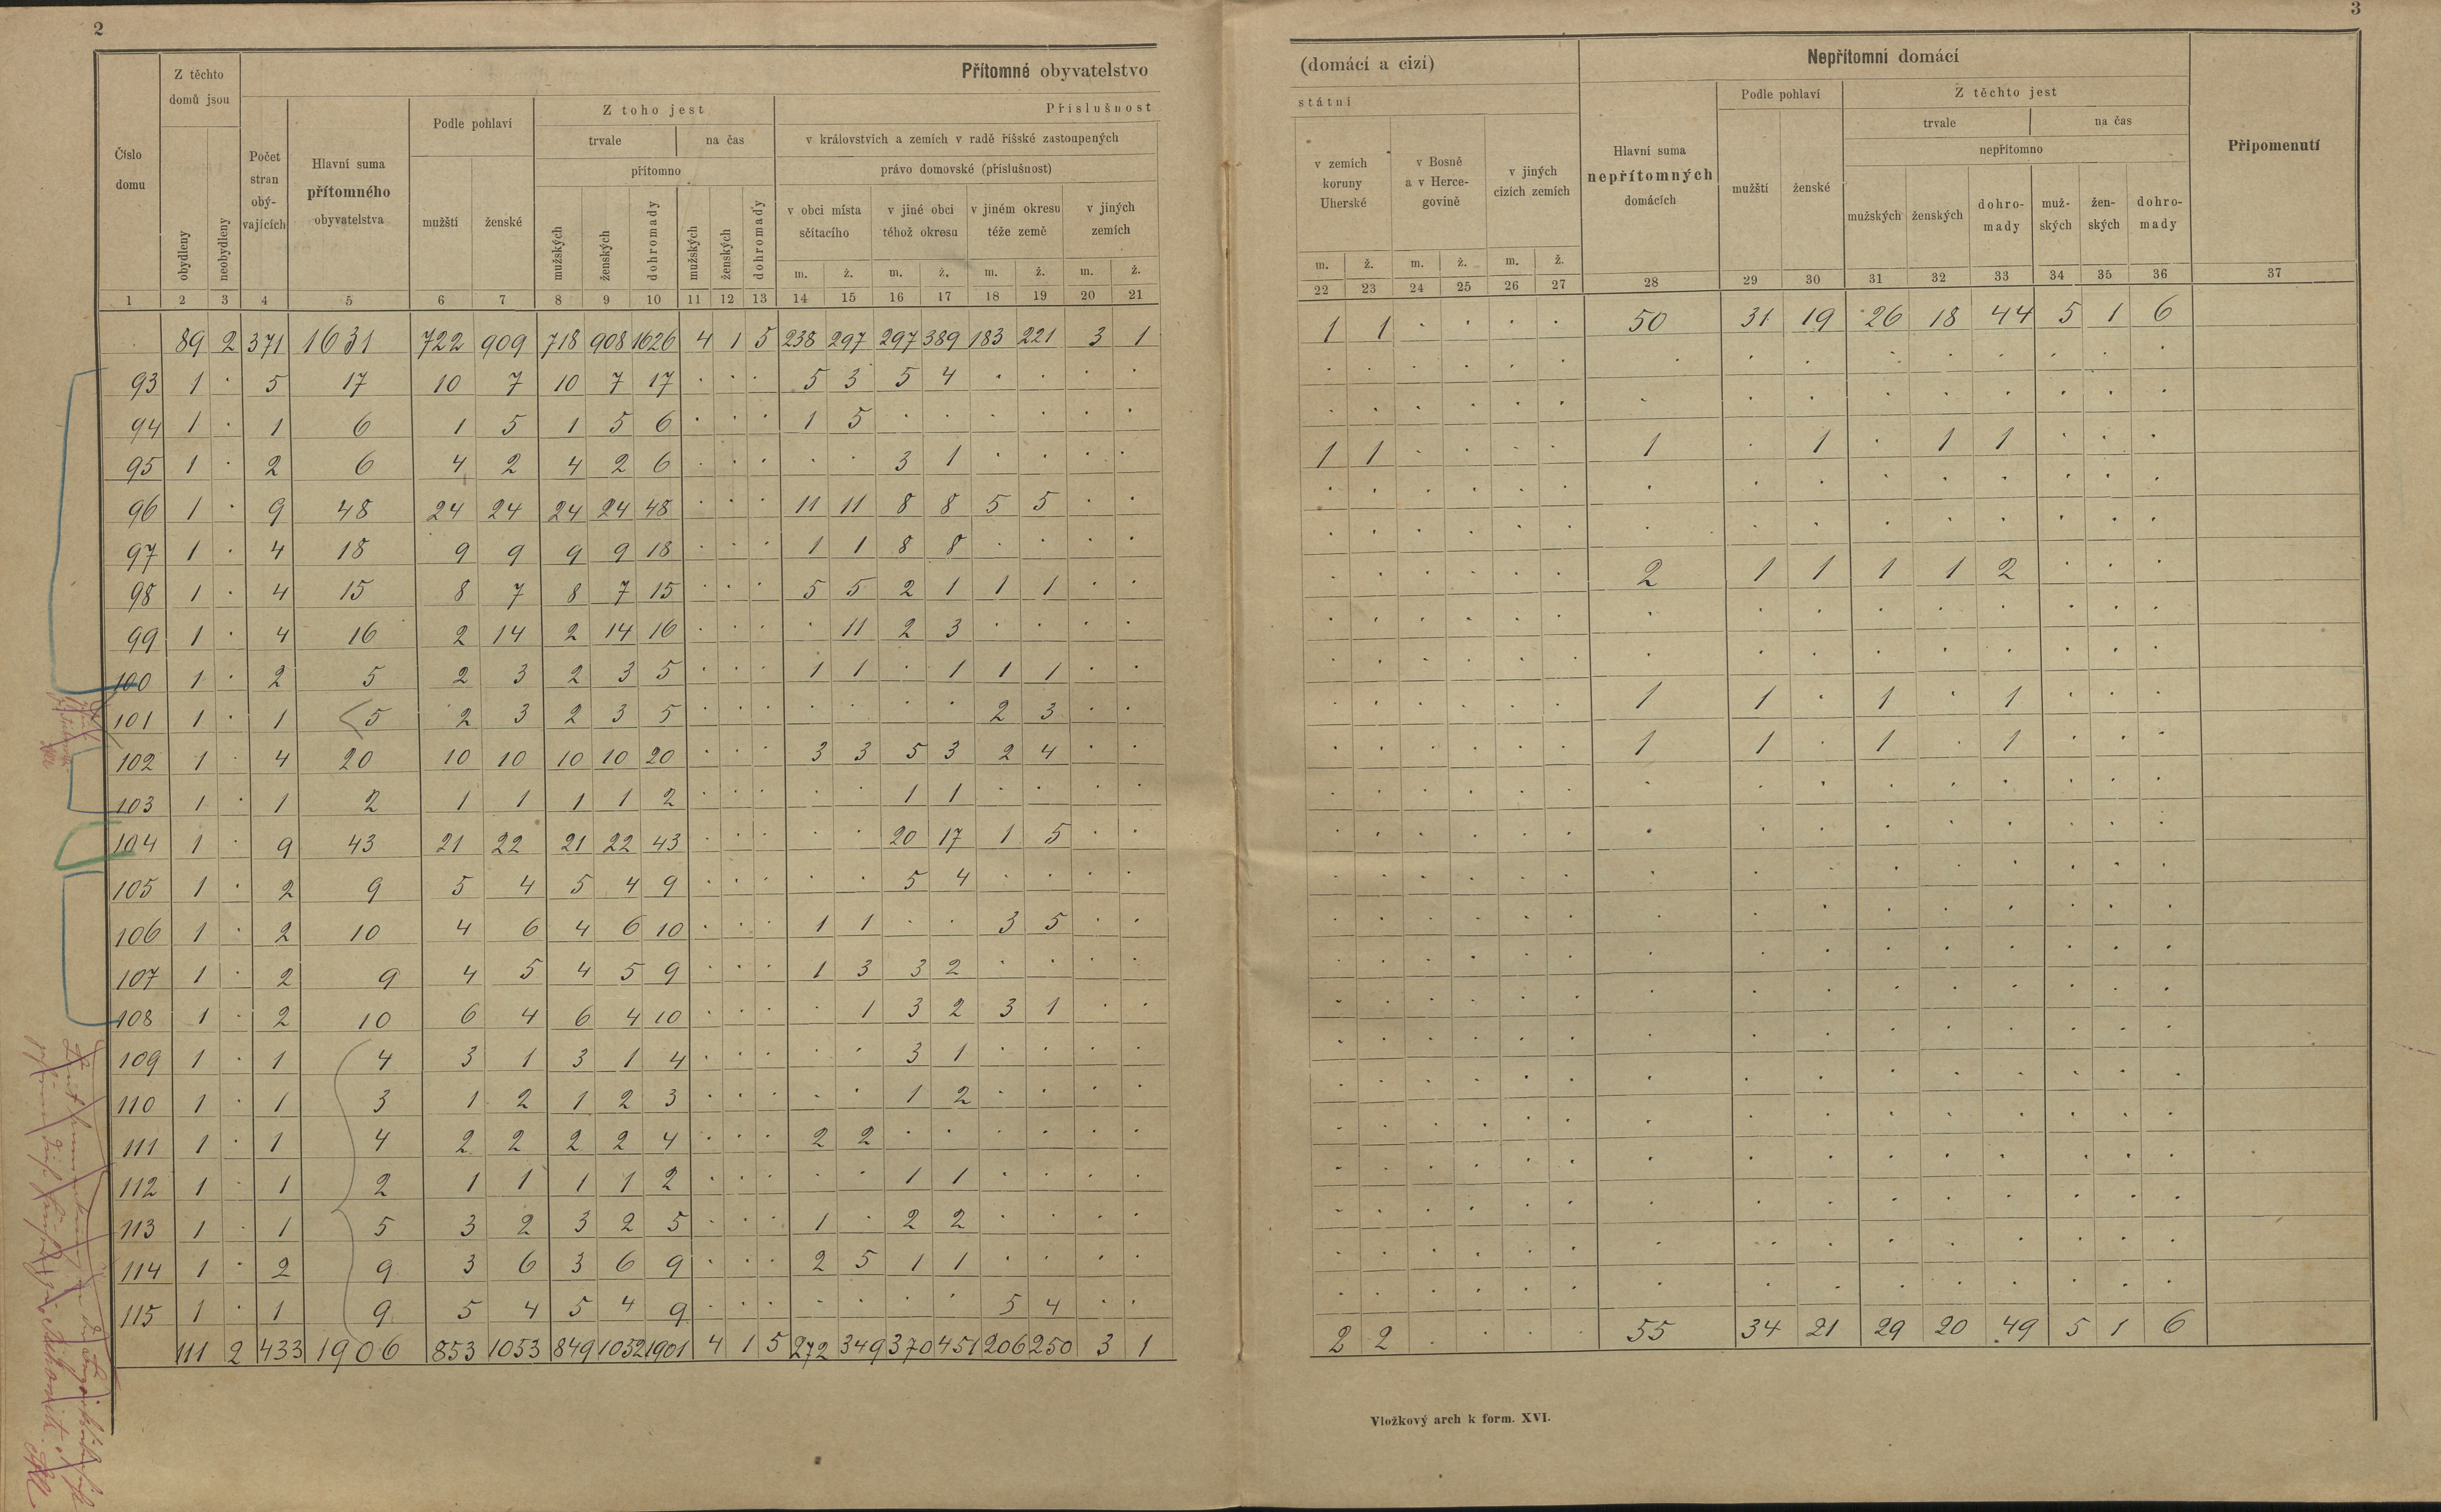 2
3
Přítomné obyvatelstvo
(domácí a cizí)
Číslo domu
Z těchto domů jsou
obydleny
neobydleny
Počet stran obývajících
Hlavní suma přítomného obyvatelstva
Podle pohlaví
mužští
ženské
Z toho jest
trvale
na čas
přítomno
mužských
ženských
dohromady
mužských
ženských
dohromady
Příslušnost
státní
v královstvích a zemích v radě říšské zastoupených
právo domovské (příslušnost)
v obci místa sčítacího
v jiné obci téhož okresu
v jiném okresu téže země
v jiných zemích
v zemích koruny Uherské
v Bosně a v Hercegovině
v jiných cizích zemích
m. ž. m. ž. m. ž. m. ž. m. ž. m. ž. m. ž.
Nepřítomní domácí
Hlavní suma nepřítomných domácích
Podle pohlaví
mužští
ženské
Z těchto jest
trvale
na čas
nepřítomno
mužských
ženských
dohromady
mužských
ženských
dohromady
Připomenutí
1 2 3 4 5 6 7 8 9 10 11 12 13 14 15 16 17 18 19 20 21 22 23 24 25 26 27 28 29 30 31 32 33 34 35 36 37
89 2 371 1631 722 909 718 908 1626 4 1 5 238 297 297 389 183 221 3 1 1 1 . . . . 50 31 19 26 18 44 5 1 6
93 1 . 5 17 10 7 10 7 17 . . . 5 3 5 4 . . . . . . . . . . . . . . . . . . .
94 1 . 1 6 1 5 1 5 6 . . . 1 5 . . . . . . . . . . . . . . . . . . . . .
95 1 . 2 6 4 2 4 2 6 . . . . . 3 1 . . . . 1 1 . . . . 1 . 1 . 1 1 . . .
96 1 . 9 48 24 24 24 24 48 . . . 11 11 8 8 5 5 . . . . . . . . . . . . . . . . .
97 1 . 4 18 9 9 9 9 18 . . . 1 1 8 8 . . . . . . . . . . . . . . . . . . .
98 1 . 4 15 8 7 8 7 15 . . . 5 5 2 1 1 1 . . . . . . . . 2 1 1 1 1 2 . . .
99 1 . 4 16 2 14 2 14 16 . . . . 11 2 3 . . . . . . . . . . . . . . . . . . .
100 1 . 2 5 2 3 2 3 5 . . . 1 1 . 1 1 1 . . . . . . . . . . . . . . . . .
101 1 . 1 5 2 3 2 3 5 . . . . . . . 2 3 . . . . . . . . 1 1 . 1 . 1 . . .
102 1 . 4 20 10 10 10 10 20 . . . 3 3 5 3 2 4 . . . . . . . . 1 1 . 1 . 1 . . .
103 1 . 1 2 1 1 1 1 2 . . . . . 1 1 . . . . . . . . . . . . . . . . . . .
104 1 . 9 43 21 22 21 22 43 . . . . . 20 17 1 5 . . . . . . . . . . . . . . . . .
105 1 . 2 9 5 4 5 4 9 . . . . . 5 4 . . . . . . . . . . . . . . . . . . .
106 1 . 2 10 4 6 4 6 10 . . . 1 1 . . 3 5 . . . . . . . . . . . . . . . . .
107 1 . 2 9 4 5 4 5 9 . . . 1 3 3 2 . . . . . . . . . . . . . . . . . . .
108 1 . 2 10 6 4 6 4 10 . . . . 1 3 2 3 1 . . . . . . . . . . . . . . . . .
109 1 . 1 4 3 1 3 1 4 . . . . . 3 1 . . . . . . . . . . . . . . . . . . .
110 1 . 1 3 1 2 1 2 3 . . . . . 1 2 . . . . . . . . . . . . . . . . . . .
111 1 . 1 4 2 2 2 2 4 . . . 2 2 . . . . . . . . . . . . . . . . . . . . .
112 1 . 1 2 1 1 1 1 2 . . . . . 1 1 . . . . . . . . . . . . . . . . . . .
113 1 . 1 5 3 2 3 2 5 . . . 1 . 2 2 . . . . . . . . . . . . . . . . . . .
114 1 . 2 9 3 6 3 6 9 . . . 2 5 1 1 . . . . . . . . . . . . . . . . . . .
115 1 . 1 9 5 4 5 4 9 . . . . . . . 5 4 . . . . . . . . . . . . . . . . .
111 2 433 1906 853 1053 849 1052 1901 4 1 5 272 349 370 451 206 250 3 1 2 2 . . . . 55 34 21 29 20 49 5 1 6
Vložkový arch k form. XVI.